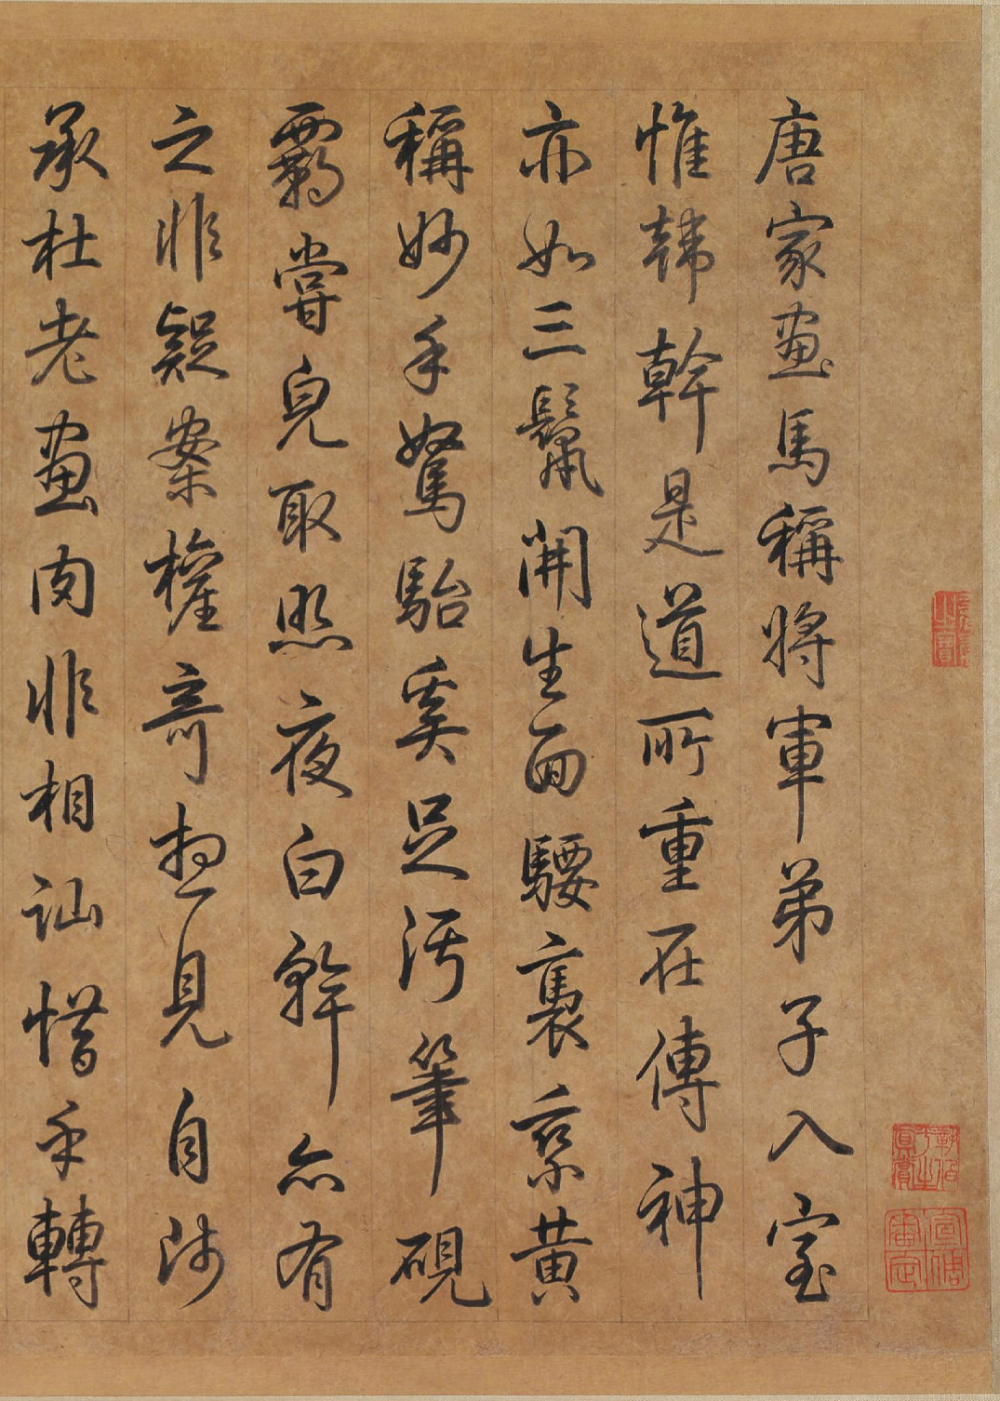 唐家畫馬稱將軍弟子入室
惟韓幹是道所重在傳神
亦如三鬣開生面騕褭乘黃
稱妙手駑駘奚足污筆硯
霸嘗皃取照夜白幹亦有
之非疑案權奇想見自師
承杜老畫肉非相訕惜乎轉